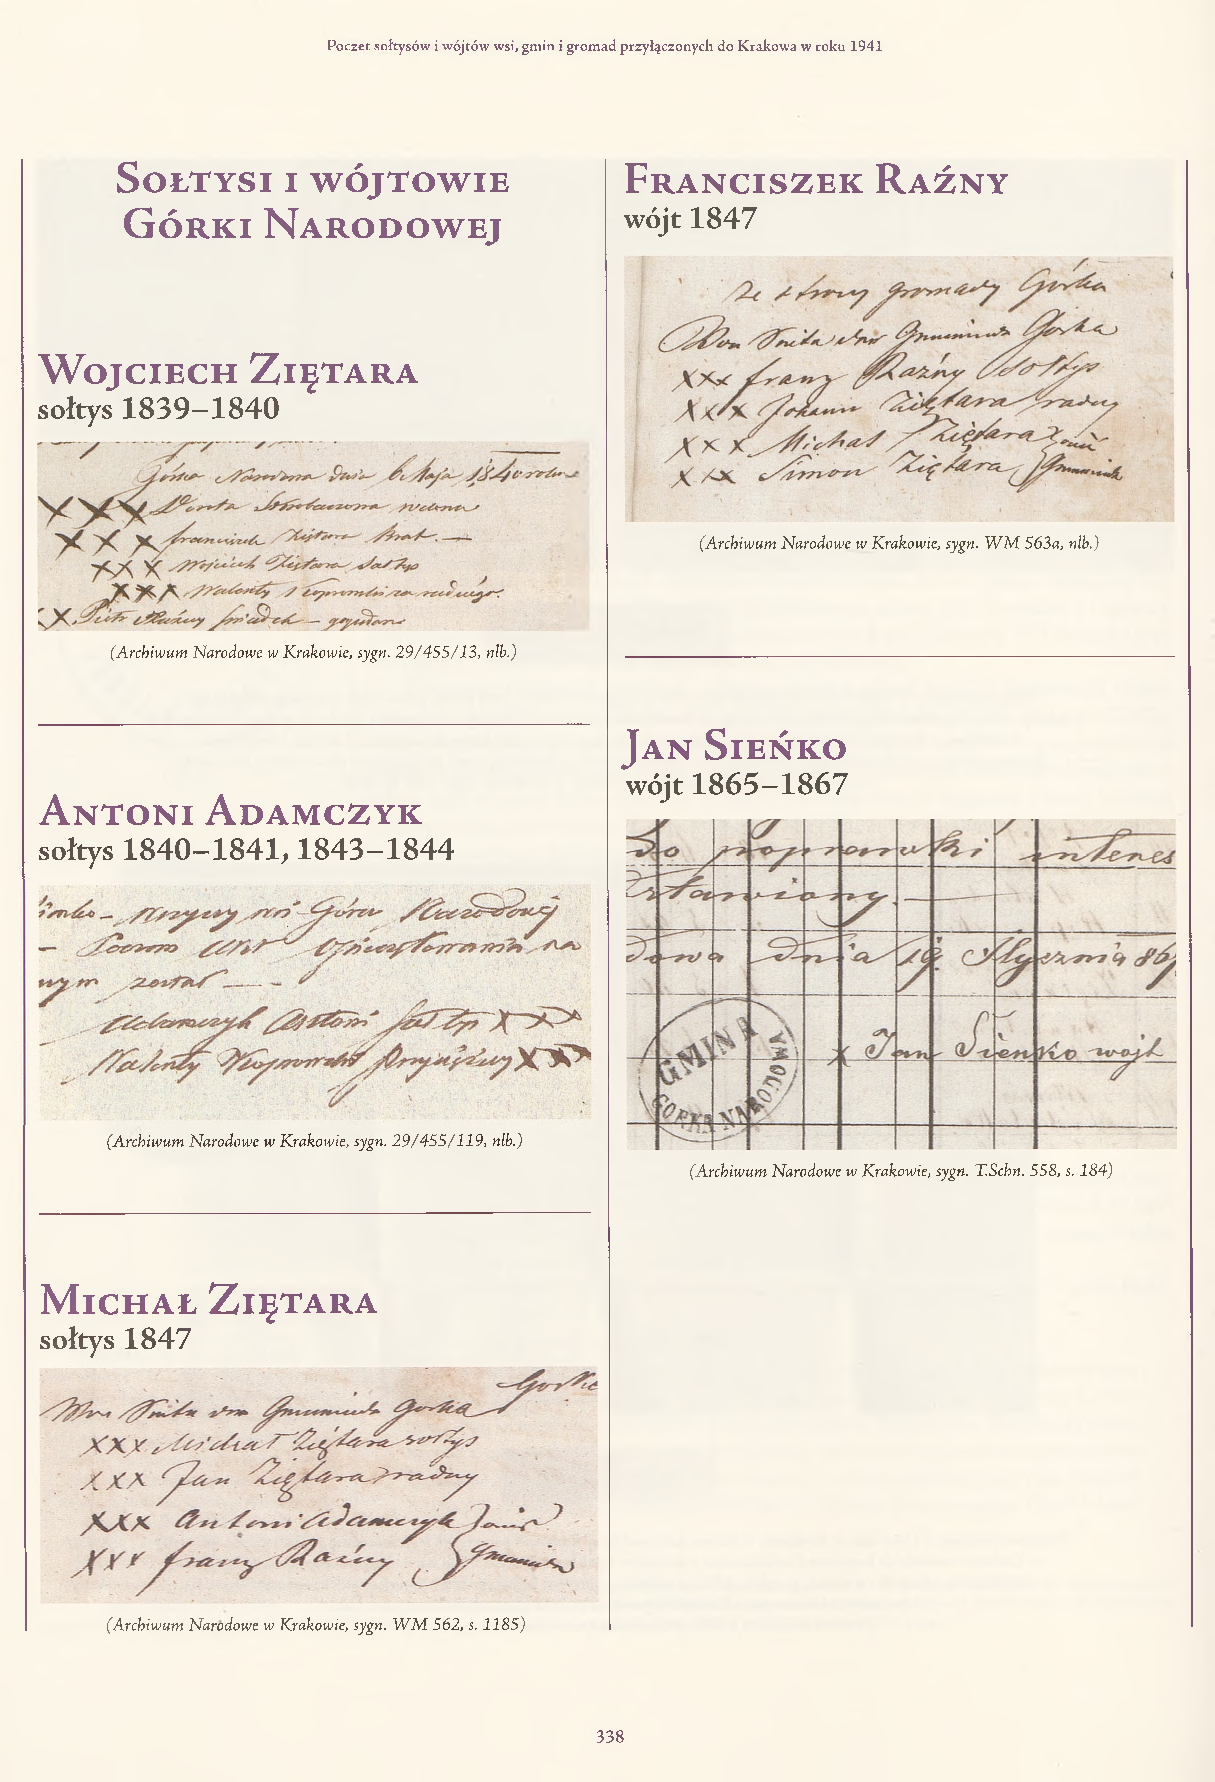 Poczet sołtysów i wójtów wsi, gmin i gromad przyłączonych do Krakowa w roku 1941
Sołtysi i wójtowie
Górki Narodowej
Wojciech Ziętara
sołtys 1839–1840
Górka Narodowa dnia 6 Maja 1840 roku
XXX
XXX Franciszek Ziętara Brat. —
XXX Wojciech Ziętara Sołtys
XXX Walenty
XX Piotr Raźny
(Archiwum Narodowe w Krakowie, sygn. 29/455/13, nlb.)
Antoni Adamczyk
sołtys 1840–1841, 1843–1844
Góra Narodowej
został — -
Adamczyk Antoni XXX
Walenty XXX
(Archiwum Narodowe w Krakowie, sygn. 29/455/119, nlb.)
Michał Ziętara
sołtys 1847
Gorka
Von Seite der Gemeinde Gorka
XXX Michał Ziętara sołtys
XXX Jan Ziętara radny
XXX Antoni Adamczyk
XXX Franz Raźny
(Archiwum Narodowe w Krakowie, sygn. WM 562, s. 1185)
Franciszek Raźny
wójt 1847
Ze strony gromady Górka
Von Seite der Gemeinde Gorka
XXX Franz Raźny Sołtys
XXX Johann Ziętara radny
XXX Michał Ziętara
XXX Simon Ziętara
(Archiwum Narodowe w Krakowie, sygn. WM 563a, nlb.)
Jan Sieńko
wójt 1865–1867
do poprawki interes
stawiony. —
dowa dnia 19. Stycznia 867
GMINA
GORKA NARODOWA
x Jan Sienko wojt
(Archiwum Narodowe w Krakowie, sygn. T.Schn. 558, s. 184)
338